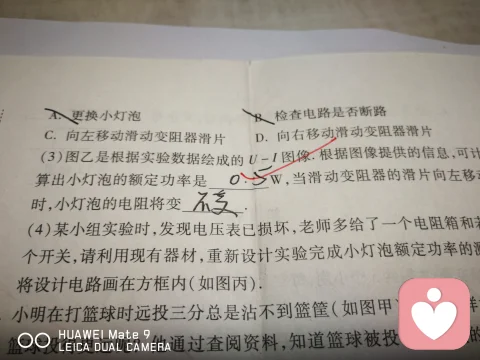 A. 更换小灯泡 B. 检查电路是否断路
C. 向左移动滑动变阻器滑片 D. 向右移动滑动变阻器滑片
(3)图乙是根据实验数据绘成的 U-I 图像. 根据图像提供的信息,可计
算出小灯泡的额定功率是 0.5 W,当滑动变阻器的滑片向左移动
时,小灯泡的电阻将变 不变 .
(4)某小组实验时,发现电压表已损坏,老师多给了一个电阻箱和若
个开关,请利用现有器材,重新设计实验完成小灯泡额定功率的测
将设计电路画在方框内(如图丙).
小明在打篮球时远投三分总是沾不到篮筐(如图甲
篮球投 他通过查阅资料,知道篮球被投
HUAWEI Mate 9
LEICA DUAL CAMERA